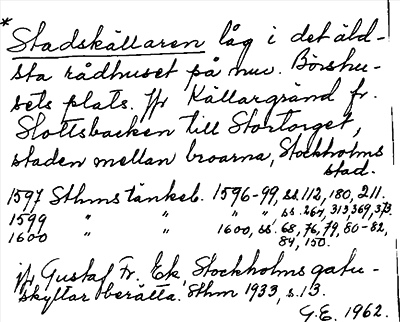 * Stadskällaren låg i det äld-
sta rådhuset på nuv. Börshu-
sets plats. Jfr Källargränd fr.
Slottsbacken till Stortorget,
staden mellan broarna, Stockholms
stad.
1597 Sthms tänkeb. 1596-99, ss. 112, 180, 211.
1599 " " " " ss. 264, 313, 369, 373.
1600 " " 1600, ss. 68, 76, 79, 80-82,
84, 150.
jfr Gustaf Fr. Ek, Stockholms gatu-
skyltar berätta. Sthm 1933, s. 13.
G.E. 1962.